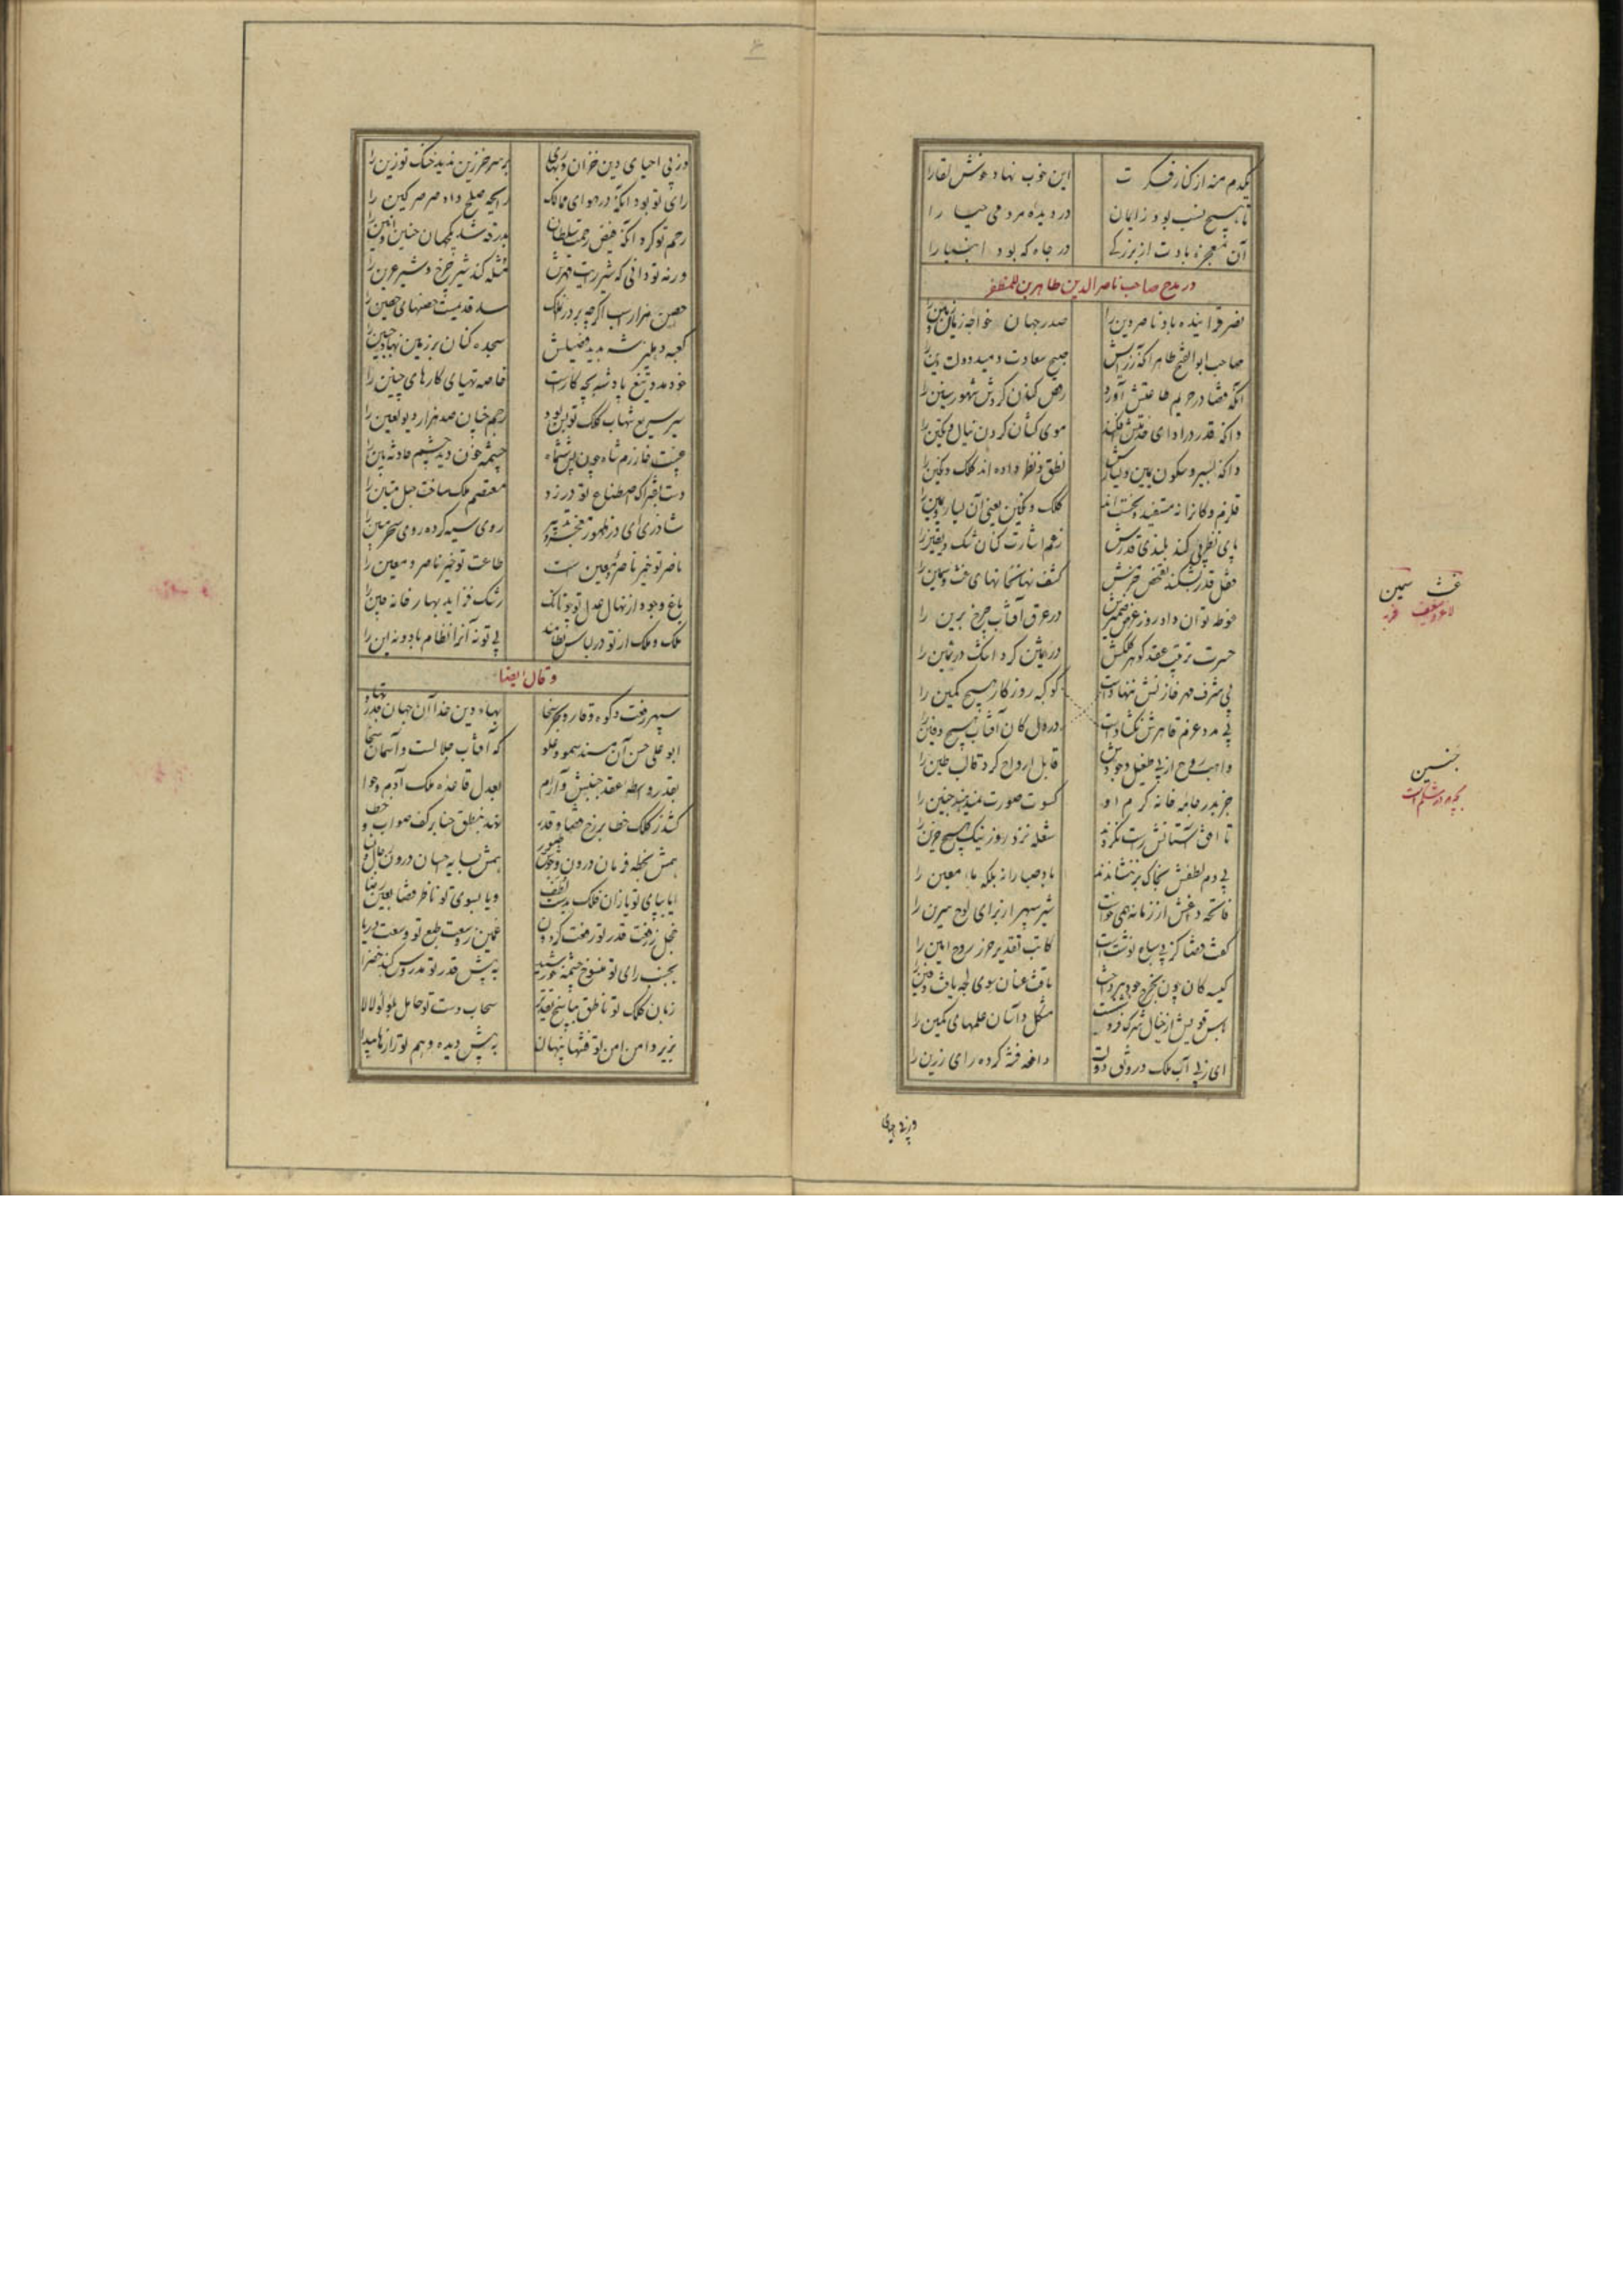 یکدم منه از کنار فکرت
این خوب نهاد خوش لقا را
تا هیچ نسب بود ز ایمان
در دیده مردمی حیا را
آن معجزه بادت از بزرگی
در جاه که بود انبیا را
در مدح صاحب ناصر الدین طاهر بن المظفر
نصر فزاینده باد ناصر دین را
صدر جهان خواجه زمان و زمین را
صاحب ابو الفتح طاهر آنکه ز رایش
صبح سعادت دمید دولت و دین را
آنکه قضا در حریم طاعتش آورد
رقص کنان گردش شهور و سنین را
وانکه قدر در ادای خدمتش افکند
موی کشان گردن ینال و تکین را
وانکه بسیر و سکون یمین و یسارش
نطق و نظر داده‌اند کلک و نگین را
قلزم و کانرا نه مستفید نخست‌اند
کلک و نگین یعنی آن یسار و یمین را
پای نظر پی کند بلندی قدرش
رغم اشارت کنان شک و یقین را
قفل قدر بشکند تفحص حزمش
کشف نهانخانهای غث و سمین را
غوطه توان داد روز عرض ضمیرش
در عرق آفتاب چرخ برین را
حسرت ترتیب عقد گوهر کلکش
در ثمین کرد اشک در ثمین را
بی شرف مهر خازنش ننهادست
در دل کان آفتاب هیچ دفین را
بی مدد عزم قاهرش نگشادست
کوکبه روزگار هیچ کمین را
واهب روح از پی طفیل وجودش
قابل ارواح کرد قالب طین را
جز بدر جامه خانه کرم او
کسوت صورت نمیدهند جنین را
تا افق آستانش راست نکردند
شعله نزد روز نیک هیچ حزین را
بی دم لطفش بخاک بر ننشاندند
باد صبا را نه بلکه ماء معین را
فاتحه داغش از زمانه همی خواست
شیر سپهر از برای لوح سرین را
گفت قضا کز پی سباع نوشتست
کاتب تقدیر حرز روح امین را
کیسه کان چون بخرج جود بپرداخت
تافت عنان سوی لجه یافت دفین را
ای ز پی آب ملک و رونق دولت
دافعه فتنه کرده رای رزین را
ور پی احیا
غث سمین
جنین
وز پی احیای دین خزان و بهاری
بر سر خر زین ندید خنگ تو زین را
رای تو بود آنکه در هوای ممالک
رایحه صلح داد صرصر کین را
رحم تو کرد آنکه فیض رحمت سلطان
بدرقه شد یک جهان حنین و انین را
ورنه تو دانی که شیر رایت قهرش
مثله کند شیر چرخ و شیر عرین را
حصن هزارسب اگرچه بر در ملک
سد قدیمست حصنهای حصین را
کعبه دهلیز شه بدید فصیلش
سجده کنان بر زمین نهاد جبین را
خود مدد تیغ پادشه بچه کارست
خاصه تهیای کارهای چنین را
سیر سریع شهاب کلک تو بس بود
رجم چنان صد هزار دیو لعین را
چشمه خون دید چشم حادثه بین را
دست بفتراک اصطناع تو در زد
معتصم ملک ساخت حبل متین را
روی سیه کرده رومی سحر مبین را
ناصر تو خیر ناصر و معین است
طاعت تو خیر ناصر و معین را
باغ وجود از نهال عدل تو چونانک
رشک فزاید بهار خانه چین را
ملک و ملک از تو در لباس نظامند
بی تو نه آنرا نظام باد و نه این را
وقال ایضا
سپهر رفعت و کوه وقار و بحر سخا
بهاء دین خدا آن جهان قدر و بها
ابو علی حسن آن مسند سمو و علو
که آفتاب جلالست و آسمان سخا
بقدر واسطه عقد جنبش و آرام
بعدل قاعده ملک آدم و حوا
کشد ز کلک خطا بر رخ قضا و قدر
نهد بنطق حنا بر کف صواب و خطا
همش بخطه فرمان درون وحوش و طیور
همش بسایه احسان درون رجال و نسا
ایا بپای تو یازان فلک بدست لطف
و یا بسوی تو ناظر قضا بعین رضا
خجل ز رفعت قدر تو رفعت گردون
غمین ز وسعت طبع تو وسعت دریا
بجنب رای تو منسوخ چشمه خورشید
به پیش قدر تو مدروس گنبد خضرا
زبان کلک تو ناطق بپاسخ تقدیر
سحاب دست تو حامل بلؤلؤ لالا
بزیر دامن امن تو فتنها پنهان
به پیش دیده وهم تو رازها پیدا